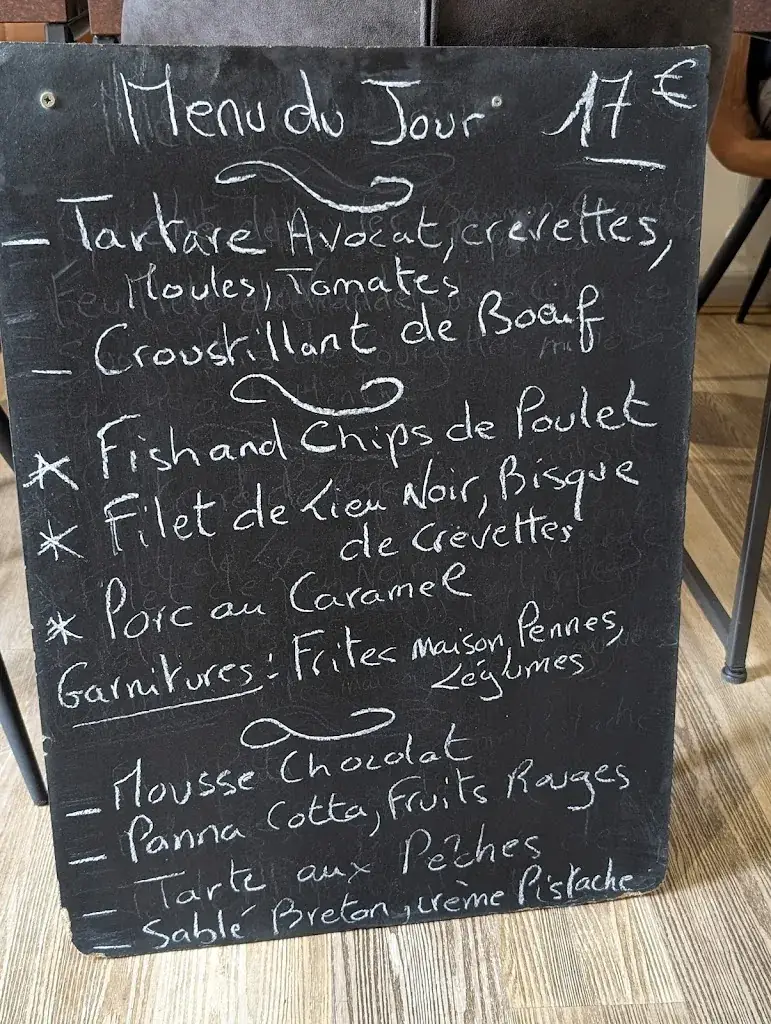 Menu du Jour 17 €
- Tartare Avocat, crevettes,
Moules, Tomates
- Croustillant de Bœuf
* Fish and Chips de Poulet
* Filet de Lieu Noir, Bisque
de crevettes
* Porc au Caramel
Garnitures : Frites maison, Pennes,
Légumes
- Mousse Chocolat
- Panna Cotta, Fruits Rouges
- Tarte aux Pêches
- Sablé Breton, crème Pistache